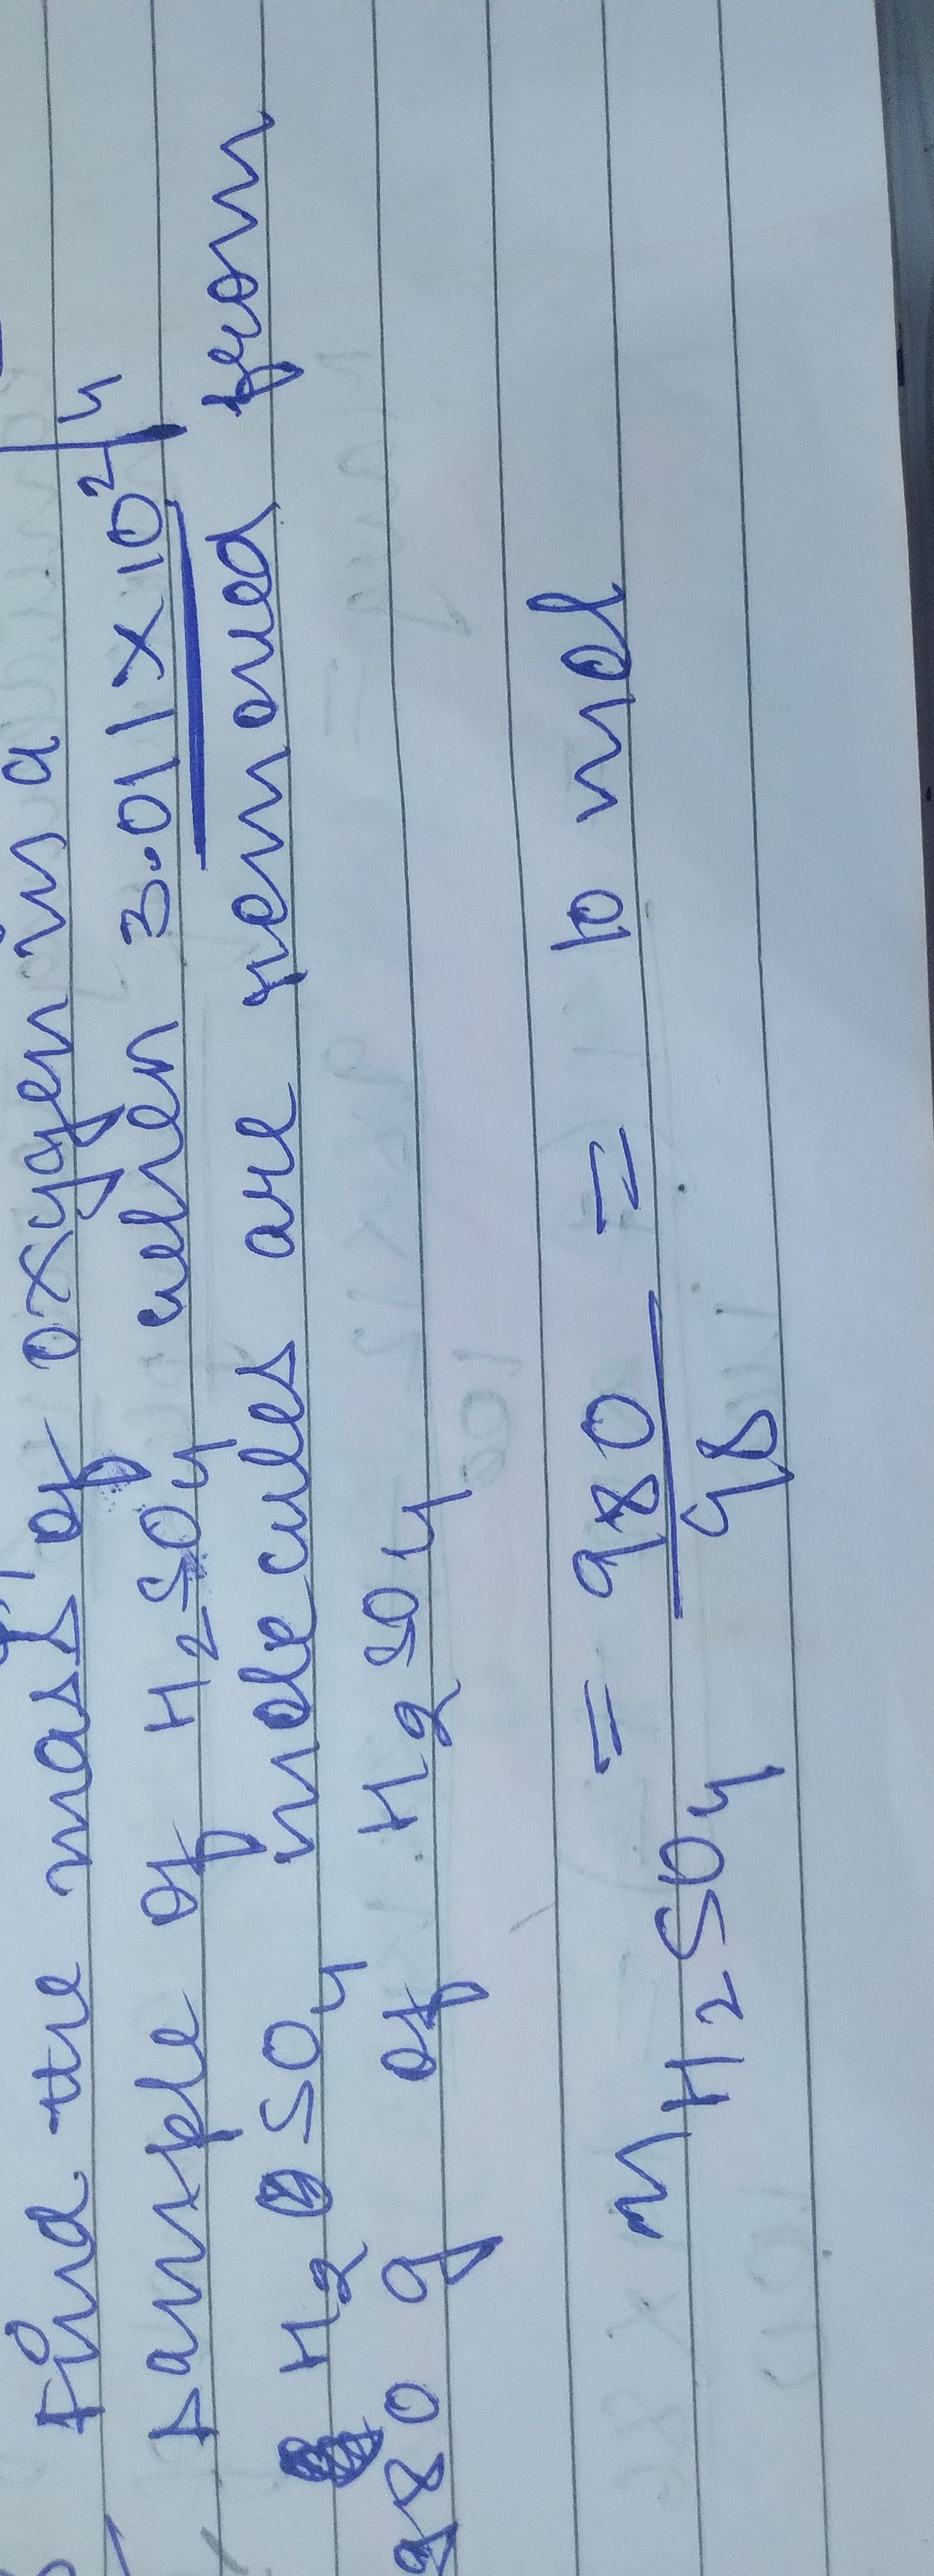 Find the mass of oxygen in a
sample of H2SO4 when 3.011 × 10^24
H2SO4 molecules are removed from
980 g of H2SO4
nH2SO4 = 980/98 = 10 mol